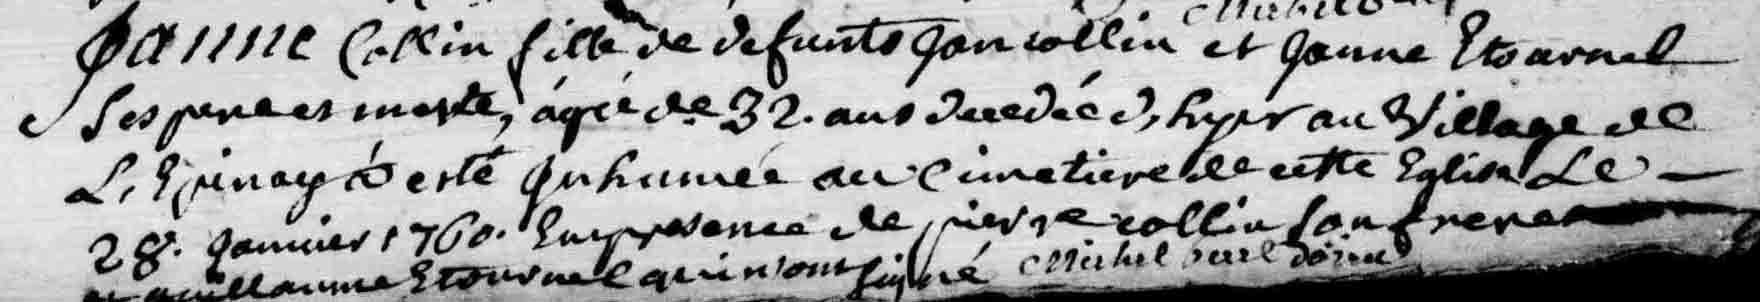 Janne Collin fille de defunts Jan collin et Janne Etournel
Ses pere et mere, agée de 32. ans decedée d'hyer au Village de
L'Epinay a esté Inhumée au Cimetiere de cette Eglise Le
28. Janvier 1760. En presence de pierre collin son frere
et Guillaume Etournel qui n'ont signé Michel